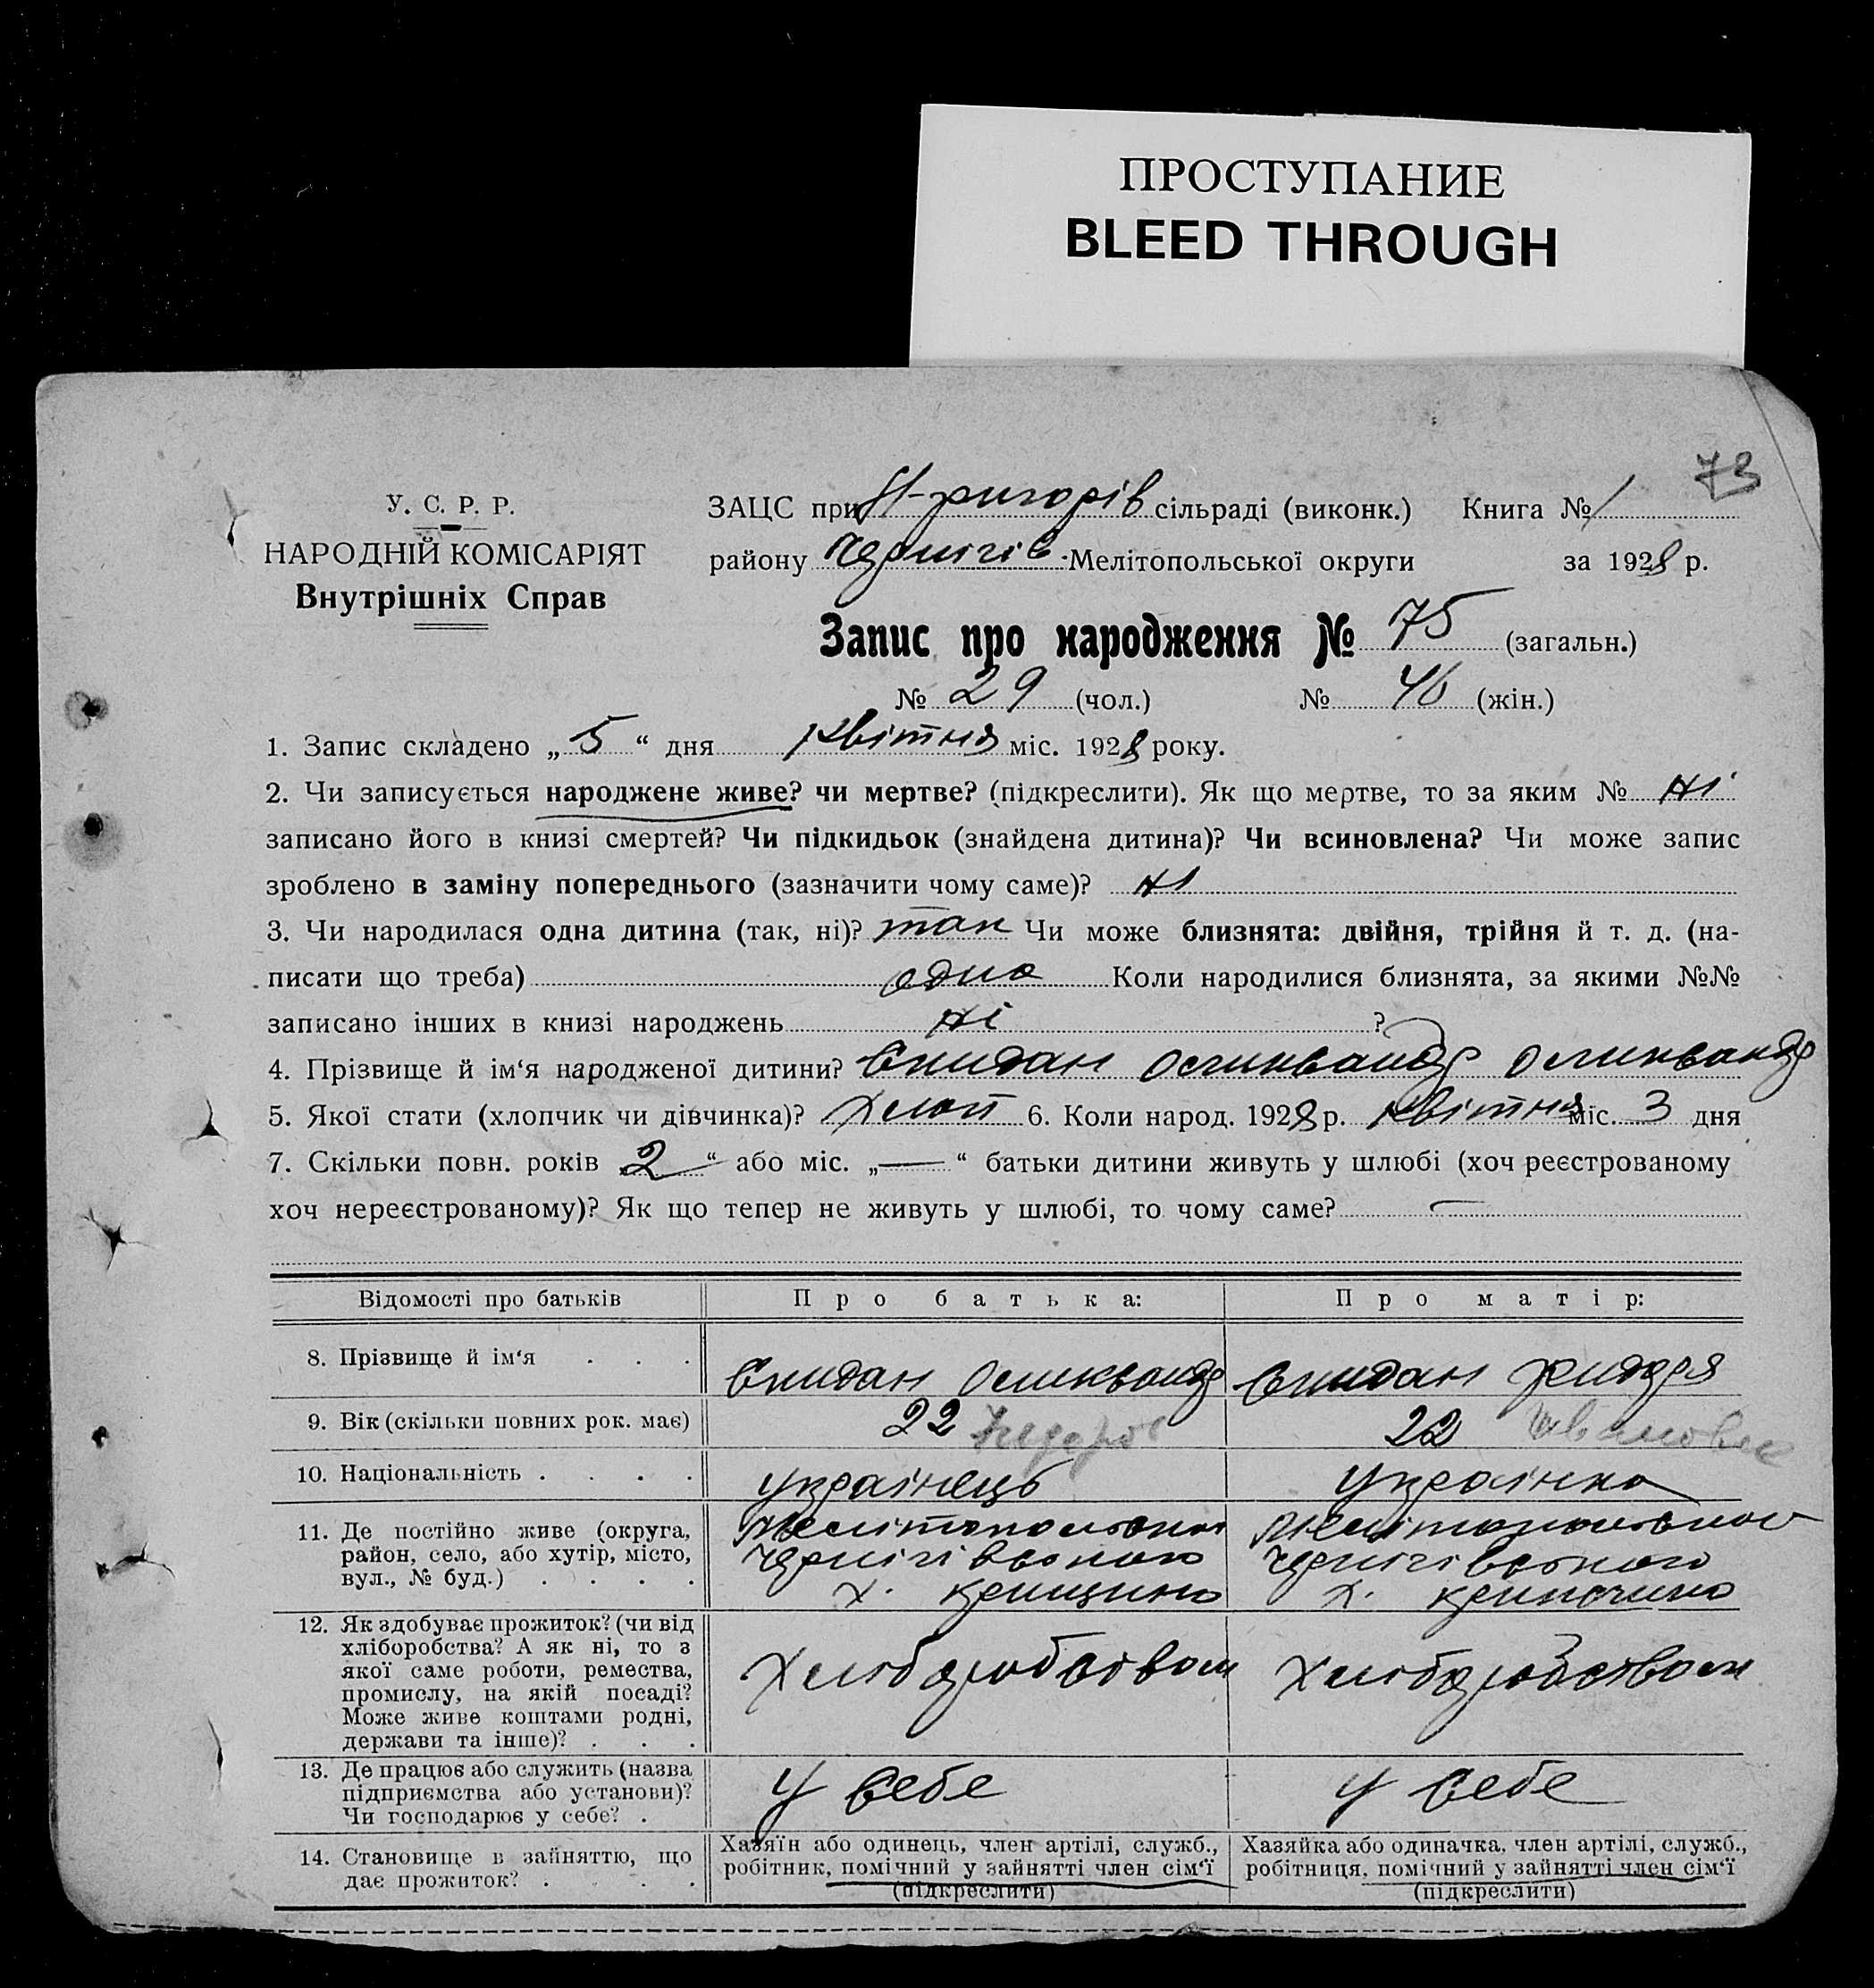 ПРОСТУПАНИЕ
BLEED THROUGH
73
У. С. Р. Р.
НАРОДНІЙ КОМІСАРІЯТ
Внутрішніх Справ
ЗАЦС при сільраді (виконк.) Книга № 1
району Чернігів. Мелітопольської округи за 1928 р.
Запис про народження № 75 (загальн.)
№ 29 (чол.) № 46 (жін.)
1. Запис складено „ 5 “ дня Квітня міс. 1928 року.
2. Чи записується народжене живе? чи мертве? (підкреслити). Як що мертве, то за яким № Ні
записано його в книзі смертей? Чи підкидьок (знайдена дитина)? Чи всиновлена? Чи може запис
зроблено в заміну попереднього (зазначити чому саме)? Ні
3. Чи народилася одна дитина (так, ні)? так Чи може близнята: двійня, трійня й т. д. (на-
писати що треба) одна Коли народилися близнята, за якими №№
записано інших в книзі народжень Ні ?
4. Прізвище й ім‘я народженої дитини? Скидан Олександр Олександр
5. Якої стати (хлопчик чи дівчинка)? Хлоп 6. Коли народ. 1928 р. Квітня міс. 3 дня
7. Скільки повн. років 2 “ або міс. „ — “ батьки дитини живуть у шлюбі (хоч реєстрованому
хоч нереєстрованому)? Як що тепер не живуть у шлюбі, то чому саме? —
Відомості про батьків
Про батька:
Про матір:
8. Прізвище й ім‘я . . .
Скидан Олександр
Скидан
9. Вік (скільки повних рок. має)
22
22 Івановна
10. Національність . . . .
українець
українка
11. Де постійно живе (округа,
район, село, або хутір, місто,
вул., № буд.) . . . .
Мелітопольської
Чернігівського
х.
Мелітопольської
Чернігівського
х.
12. Як здобуває прожиток? (чи від
хліборобства? А як ні, то з
якої саме роботи, ремества,
промислу, на якій посаді?
Може живе коштами родні,
держави та інше)? . . .
Хліборобством
Хліборобством
13. Де працює або служить (назва
підприємства або установи)?
Чи господарює у себе? .
У себе
У себе
14. Становище в зайняттю, що
дає прожиток? . . . .
Хазяїн або одинець, член артілі, служб.,
робітник, помічний у зайнятті член сім‘ї
(підкреслити)
Хазяйка або одиначка, член артілі, служб.,
робітниця, помічний у зайнятті член сім‘ї
(підкреслити)